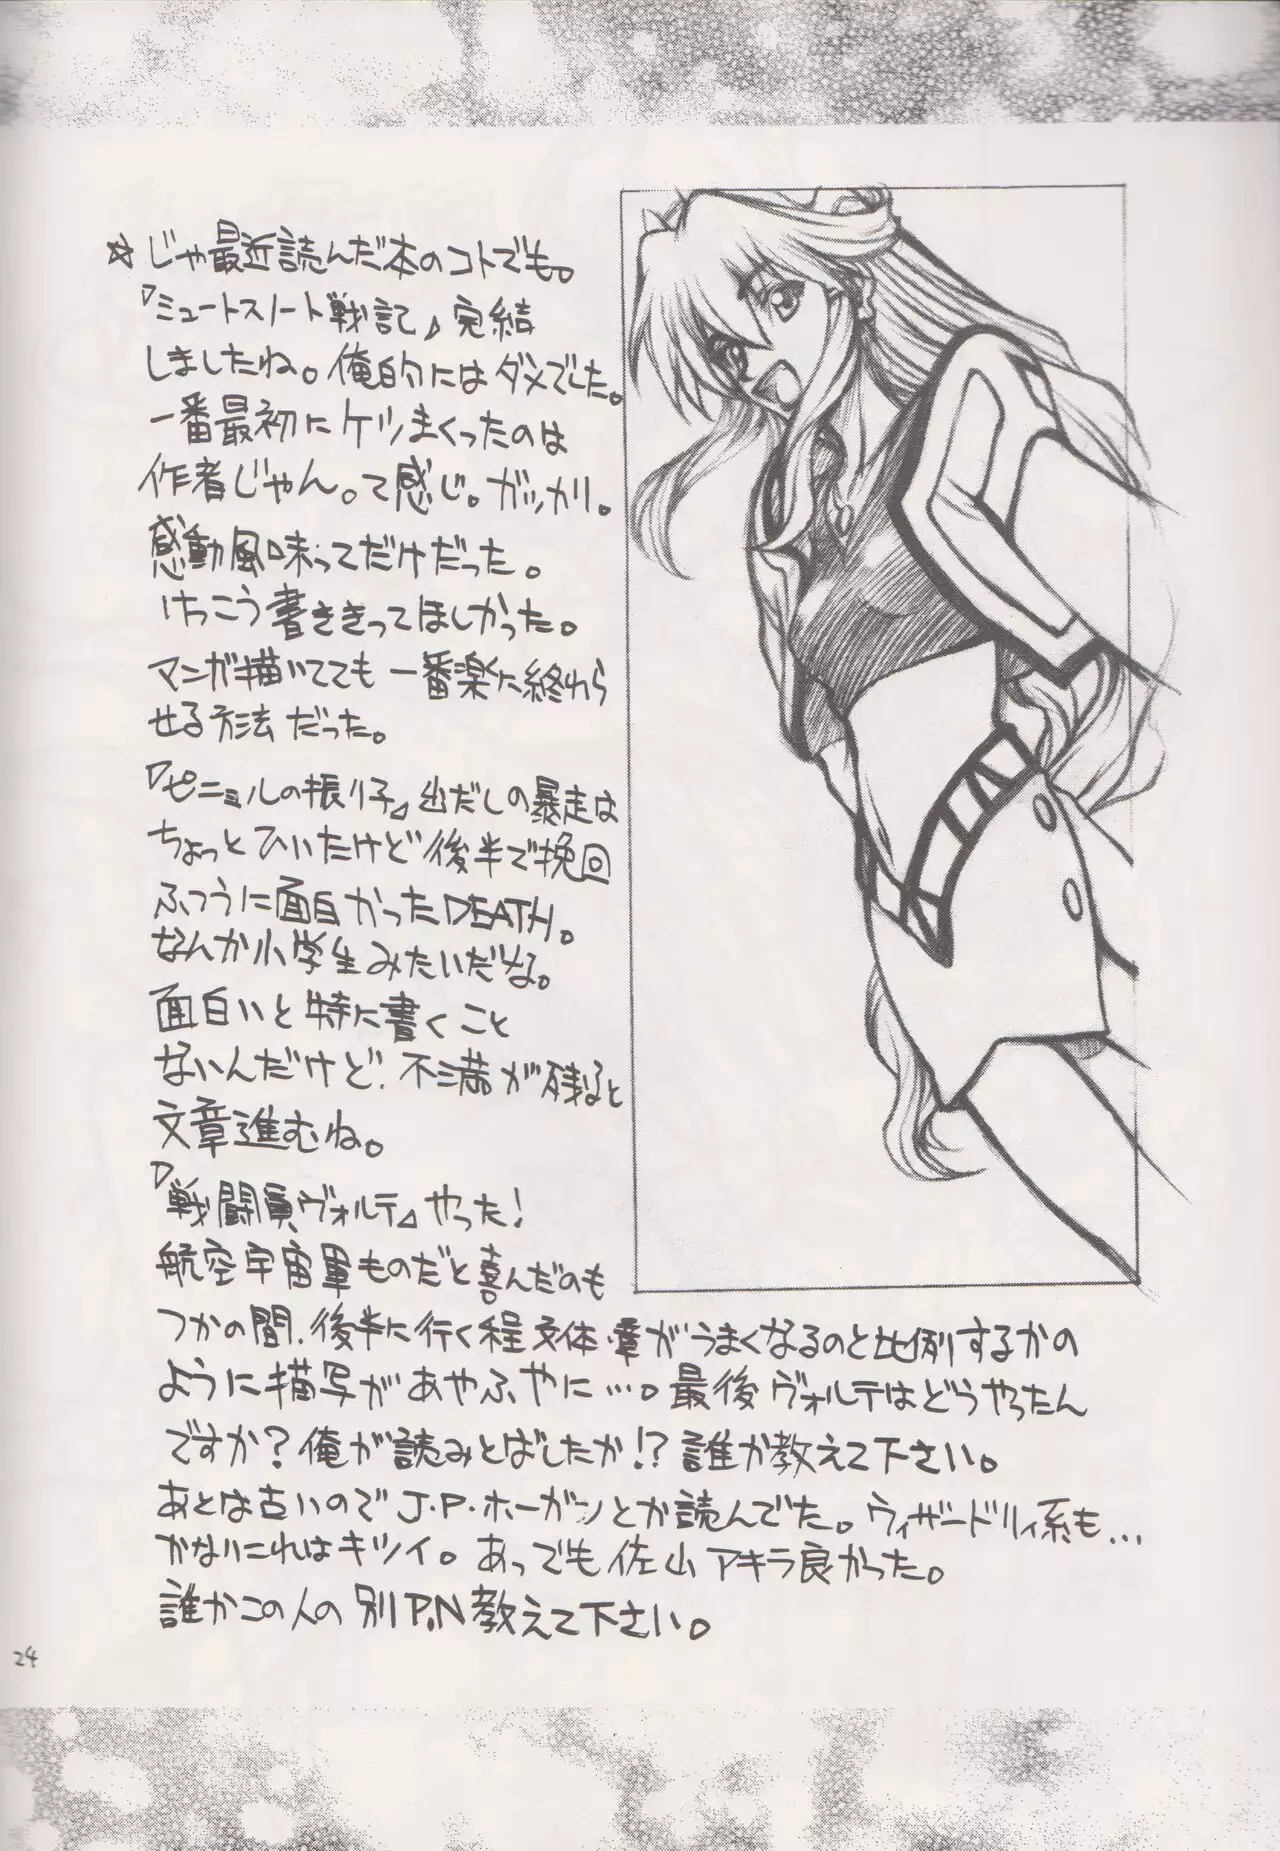 ☆じゃ最近読んだ本のコトでも。
『ミュートスノート戦記』完結
しましたね。俺的にはダメでした。
一番最初にケツまくったのは
作者じゃん。って感じ。ガッカリ。
感動風味ってだけだった。
けっこう書ききってほしかった。
マンガ描いてても一番楽に終わら
せる方法だった。
『ピニェルの振り子』出だしの暴走は
ちょっとひいたけど後半で挽回
ふつうに面白かったDEATH。
なんか小学生みたいだな。
面白いと特に書くこと
ないんだけど、不満が残ると
文章進むね。
『戦闘員ヴォルテ』やった!
航空宇宙軍ものだと喜んだのも
つかの間、後半に行く程文体・章がうまくなるのと比例するかの
ように描写があやふやに…。最後ヴォルテはどうやったん
ですか?俺が読みとばしたか!?誰か教えて下さい。
あとは古いのでJ・P・ホーガンとか読んでた。ウィザードリィ系も…
かなりこれはキツイ。あっでも佐山アキラ良かった。
誰かこの人の別P.N教えて下さい。
24